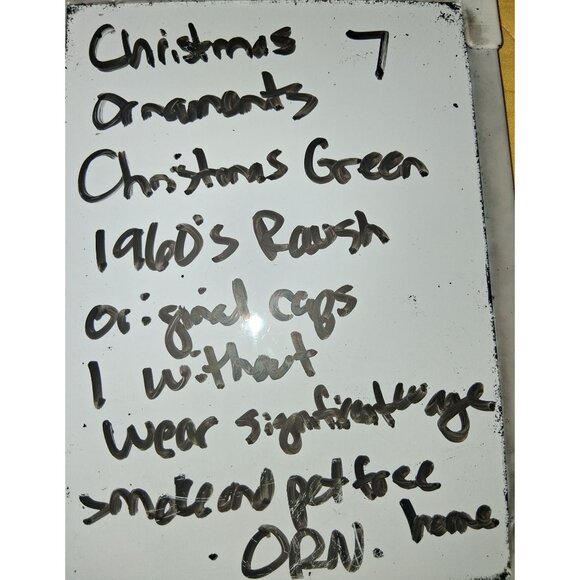 Christmas 7
Ornaments
Christmas Green
1960's Raush
original caps
1 without
Wear significant age
smoke and pet free
home
ORN.